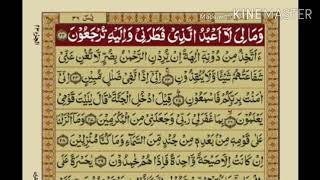 Made With KINEMASTER
يٰسٓ ٣٦
وَمَا لِيَ لَآ اَعْبُدُ الَّذِيْ فَطَرَنِيْ وَاِلَيْهِ تُرْجَعُوْنَ ﴿٢٢﴾
ءَاَتَّخِذُ مِنْ دُوْنِهٖٓ اٰلِهَةً اِنْ يُّرِدْنِ الرَّحْمٰنُ بِضُرٍّ لَّا تُغْنِ عَنِّيْ
شَفَاعَتُهُمْ شَيْـًٔا وَّلَا يُنْقِذُوْنِ ﴿٢٣﴾ اِنِّيْٓ اِذًا لَّفِيْ ضَلٰلٍ مُّبِيْنٍ ﴿٢٤﴾ اِنِّيْٓ
اٰمَنْتُ بِرَبِّكُمْ فَاسْمَعُوْنِ ﴿٢٥﴾ قِيْلَ ادْخُلِ الْجَنَّةَ قَالَ يٰلَيْتَ قَوْمِيْ
يَعْلَمُوْنَ ﴿٢٦﴾ بِمَا غَفَرَ لِيْ رَبِّيْ وَجَعَلَنِيْ مِنَ الْمُكْرَمِيْنَ ﴿٢٧﴾ وَمَآ اَنْزَلْنَا
عَلٰى قَوْمِهٖ مِنْۢ بَعْدِهٖ مِنْ جُنْدٍ مِّنَ السَّمَآءِ وَمَا كُنَّا مُنْزِلِيْنَ ﴿٢٨﴾
اِنْ كَانَتْ اِلَّا صَيْحَةً وَّاحِدَةً فَاِذَا هُمْ خٰمِدُوْنَ ﴿٢٩﴾ يٰحَسْرَةً عَلَى